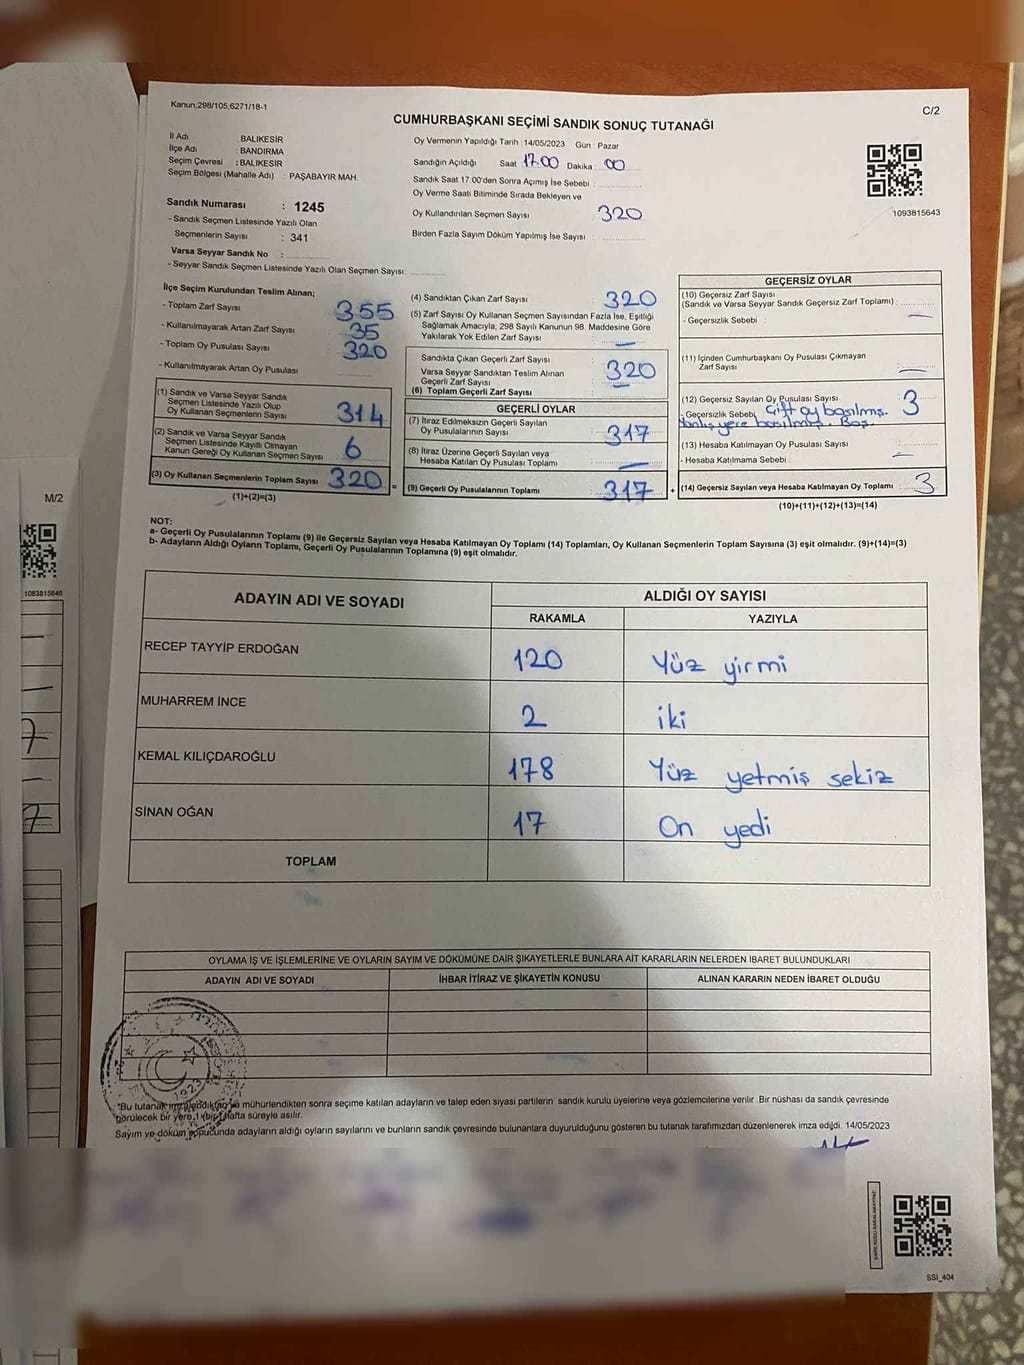 Kanun;298/105;6271/18-1
C/2
CUMHURBAŞKANI SEÇİMİ SANDIK SONUÇ TUTANAĞI
İl Adı BALIKESİR
İlçe Adı : BANDIRMA
Seçim Çevresi : BALIKESİR
Seçim Bölgesi (Mahalle Adı) : PAŞABAYIR MAH.
Sandık Numarası : 1245
- Sandık Seçmen Listesinde Yazılı Olan
Seçmenlerin Sayısı : 341
Varsa Seyyar Sandık No :
- Seyyar Sandık Seçmen Listesinde Yazılı Olan Seçmen Sayısı:
Oy Vermenin Yapıldığı Tarih :14/05/2023 Gün : Pazar
Sandığın Açıldığı Saat 17.00 Dakika 00
Sandık Saat 17:00'den Sonra Açımış İse Sebebi :
Oy Verme Saati Bitiminde Sırada Bekleyen ve
Oy Kullandırılan Seçmen Sayısı : 320
Birden Fazla Sayım Döküm Yapılmış İse Sayısı :
1093815643
İlçe Seçim Kurulundan Teslim Alınan;
- Toplam Zarf Sayısı : 355
- Kullanılmayarak Artan Zarf Sayısı : 35
- Toplam Oy Pusulası Sayısı : 320
- Kullanılmayarak Artan Oy Pusulası
(1) Sandık ve Varsa Seyyar Sandık
Seçmen Listesinde Yazılı Olup
Oy Kullanan Seçmenlerin Sayısı : 314
(2) Sandık ve Varsa Seyyar Sandık
Seçmen Listesinde Kayıtlı Olmayan
Kanun Gereği Oy Kullanan Seçmen Sayısı : 6
(3) Oy Kullanan Seçmenlerin Toplam Sayısı : 320
(1)+(2)=(3)
(4) Sandıktan Çıkan Zarf Sayısı : 320
(5) Zarf Sayısı Oy Kullanan Seçmen Sayısından Fazla İse, Eşitliği
Sağlamak Amacıyla; 298 Sayılı Kanunun 98. Maddesine Göre
Yakılarak Yok Edilen Zarf Sayısı : —
Sandıkta Çıkan Geçerli Zarf Sayısı : 320
Varsa Seyyar Sandıktan Teslim Alınan
Geçerli Zarf Sayısı : —
(6) Toplam Geçerli Zarf Sayısı :
GEÇERLİ OYLAR
(7) İtiraz Edilmeksizin Geçerli Sayılan
Oy Pusulalarının Sayısı : 317
(8) İtiraz Üzerine Geçerli Sayılan veya
Hesaba Katılan Oy Pusulası Toplamı : —
= (9) Geçerli Oy Pusulalarının Toplamı : 317
GEÇERSİZ OYLAR
(10) Geçersiz Zarf Sayısı
(Sandık ve Varsa Seyyar Sandık Geçersiz Zarf Toplamı) : —
- Geçersizlik Sebebi :
(11) İçinden Cumhurbaşkanı Oy Pusulası Çıkmayan
Zarf Sayısı : —
(12) Geçersiz Sayılan Oy Pusulası Sayısı : 3
- Geçersizlik Sebebi Çift oy basılmış.
Yanlış yere basılmış. Boş.
(13) Hesaba Katılmayan Oy Pusulası Sayısı : —
- Hesaba Katılmama Sebebi :
+ (14) Geçersiz Sayılan veya Hesaba Katılmayan Oy Toplamı : 3
(10)+(11)+(12)+(13)=(14)
NOT:
a- Geçerli Oy Pusulalarının Toplamı (9) ile Geçersiz Sayılan veya Hesaba Katılmayan Oy Toplamı (14) Toplamları, Oy Kullanan Seçmenlerin Toplam Sayısına (3) eşit olmalıdır. (9)+(14)=(3)
b- Adayların Aldığı Oyların Toplamı, Geçerli Oy Pusulalarının Toplamına (9) eşit olmalıdır.
ADAYIN ADI VE SOYADI
ALDIĞI OY SAYISI
RAKAMLA YAZIYLA
RECEP TAYYİP ERDOĞAN 120 Yüz yirmi
MUHARREM İNCE 2 iki
KEMAL KILIÇDAROĞLU 178 Yüz yetmiş sekiz
SİNAN OĞAN 17 On yedi
TOPLAM
OYLAMA İŞ VE İŞLEMLERİNE VE OYLARIN SAYIM VE DÖKÜMÜNE DAİR ŞİKAYETLERLE BUNLARA AİT KARARLARIN NELERDEN İBARET BULUNDUKLARI
ADAYIN ADI VE SOYADI İHBAR İTİRAZ VE ŞİKAYETİN KONUSU ALINAN KARARIN NEDEN İBARET OLDUĞU
1923
*Bu tutanak ve mühürlendikten sonra seçime katılan adayların ve talep eden siyasi partilerin sandık kurulu üyelerine veya gözlemcilerine verilir .Bir nüshası da sandık çevresinde
görülecek bir yere 1 (bir) hafta süreyle asılır.
Sayım ve döküm sonucunda adayların aldığı oyların sayılarını ve bunların sandık çevresinde bulunanlara duyurulduğunu gösteren bu tutanak tarafımızdan düzenlenerek imza edildi. 14/05/2023
SSİ_404
M/2
7
7